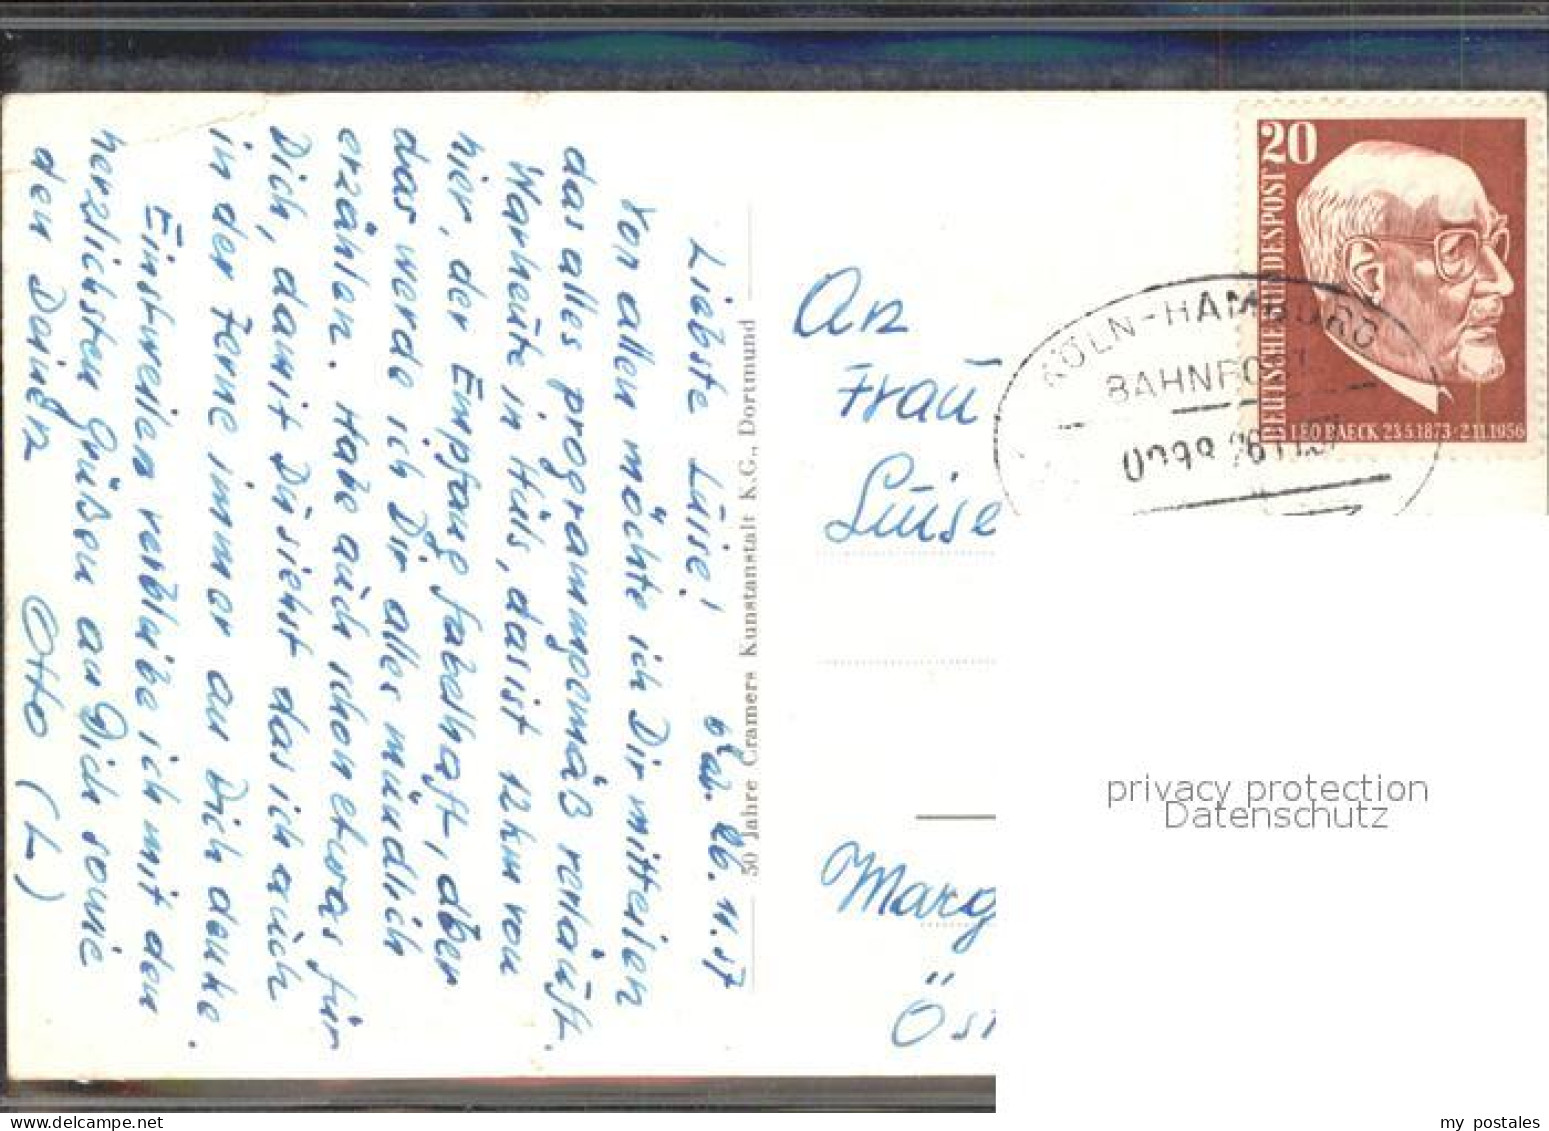 Liebste Luise!
26. 11. 57
Vor allen möchte ich Dir mitteilen
das alles programmgemäß verläuft.
War heute in Hüls, das ist 12 km von
hier, der Empfang fabelhaft, über
das werde ich Dir alles mündlich
erzählen. Habe auch schon etwas für
Dich, damit Du siehst das ich auch
in der Ferne immer an Dich denke.
Einstweilen verbleibe ich mit den
herzlichsten Grüßen an Dich sowie
den Deinen
Otto (L)
50 Jahre Cramers Kunstanstalt K.G., Dortmund
An
Frau
Luise
Marg
Öst
20
DEUTSCHE BUNDESPOST
LEO BAECK 23.5.1873-2.11.1956
KÖLN-HAMBURG
BAHNPOST
privacy protection
Datenschutz
delcampe.net
my postales